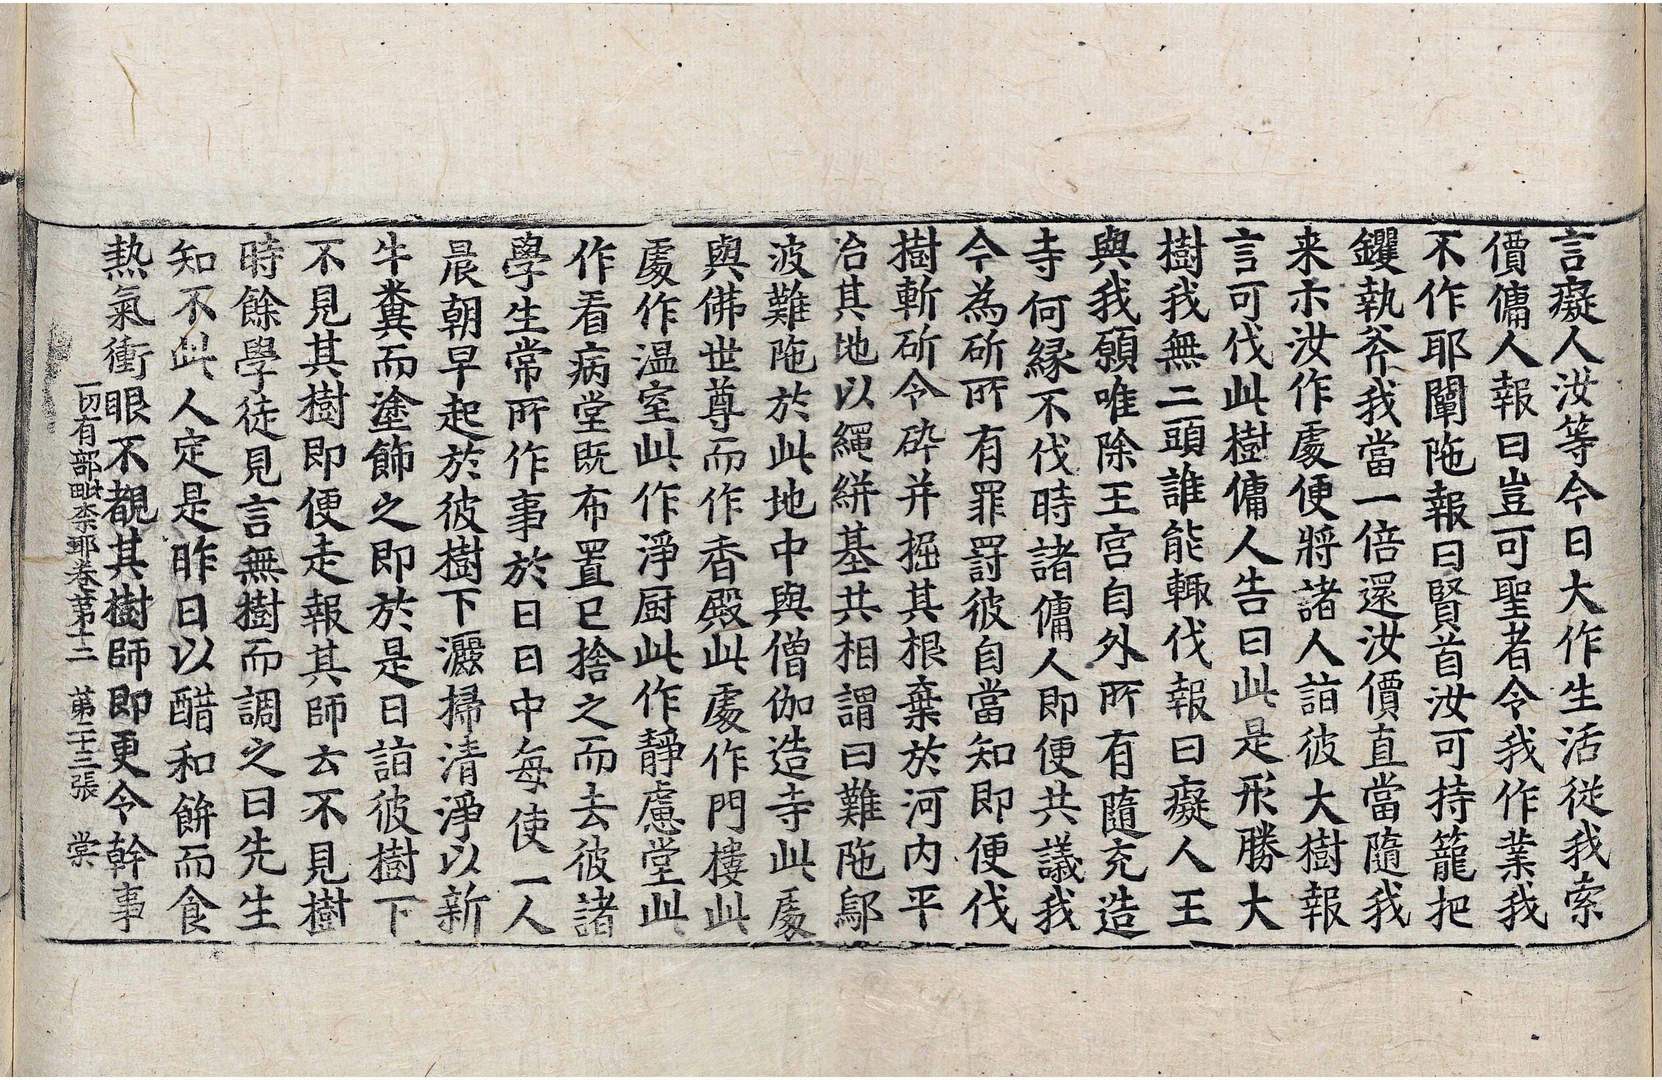 言癡人汝等今日大作生活從我索
價傭人報曰豈可聖者令我作業我
不作耶闡陁報曰賢首汝可持籠把
钁執斧我當一倍還汝價直當隨我
来示汝作處便將諸人詣彼大樹報
言可伐此樹傭人告曰此是形勝大
樹我無二頭誰能輒伐報曰癡人王
與我願唯除王宮自外所有隨充造
寺何緣不伐時諸傭人即便共議我
今為斫所有罪罸彼自當知即便伐
樹斬斫令碎并掘其根棄於河內平
治其地以繩絣基共相謂曰難陁鄔
波難陁於此地中與僧伽造寺此處
與佛世尊而作香殿此處作門樓此
處作温室此作淨厨此作靜慮堂此
作看病堂既布置已捨之而去彼諸
學生常所作事於日日中每使一人
晨朝早起於彼樹下灑掃清淨以新
牛糞而塗飾之即於是日詣彼樹下
不見其樹即便走報其師云不見樹
時餘學徒見言無樹而調之曰先生
知不此人定是昨日以醋和餅而食
熱氣衝眼不覩其樹師即更令幹事
一切有部毗柰耶卷第十二 第二十三張 棠